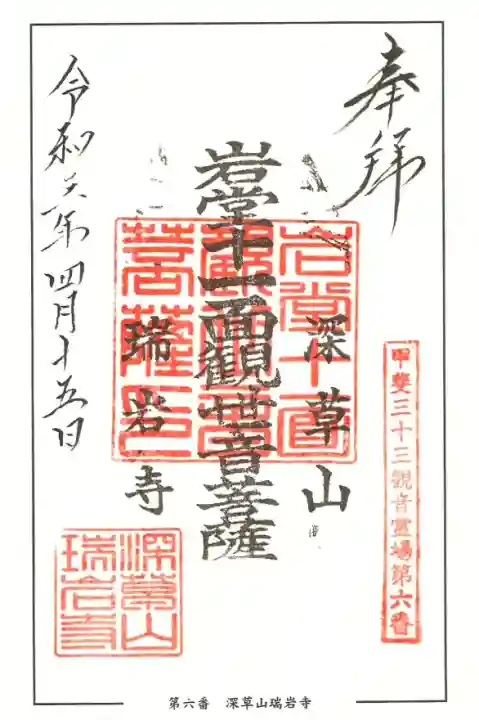 奉拝
甲斐三十三観音霊場第六番
深草山
岩堂十一面観世音菩薩
瑞岩寺
令和六年四月十五日
深草山
瑞岩寺
第六番　深草山瑞岩寺